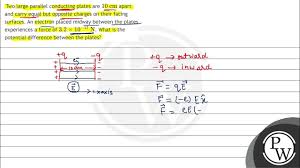 Two large parallel conducting plates are 10 cm apart,
and carry equal but opposite charges on their facing
surfaces. An electron placed midway between the plates
experiences a force of 3.2 × 10 N. What is the
potential difference between the plates?
+q -q
+q → outward
-q → inward
E
x-axis
F = qE
F = (-e) E x̂
F = eE (-
P
W